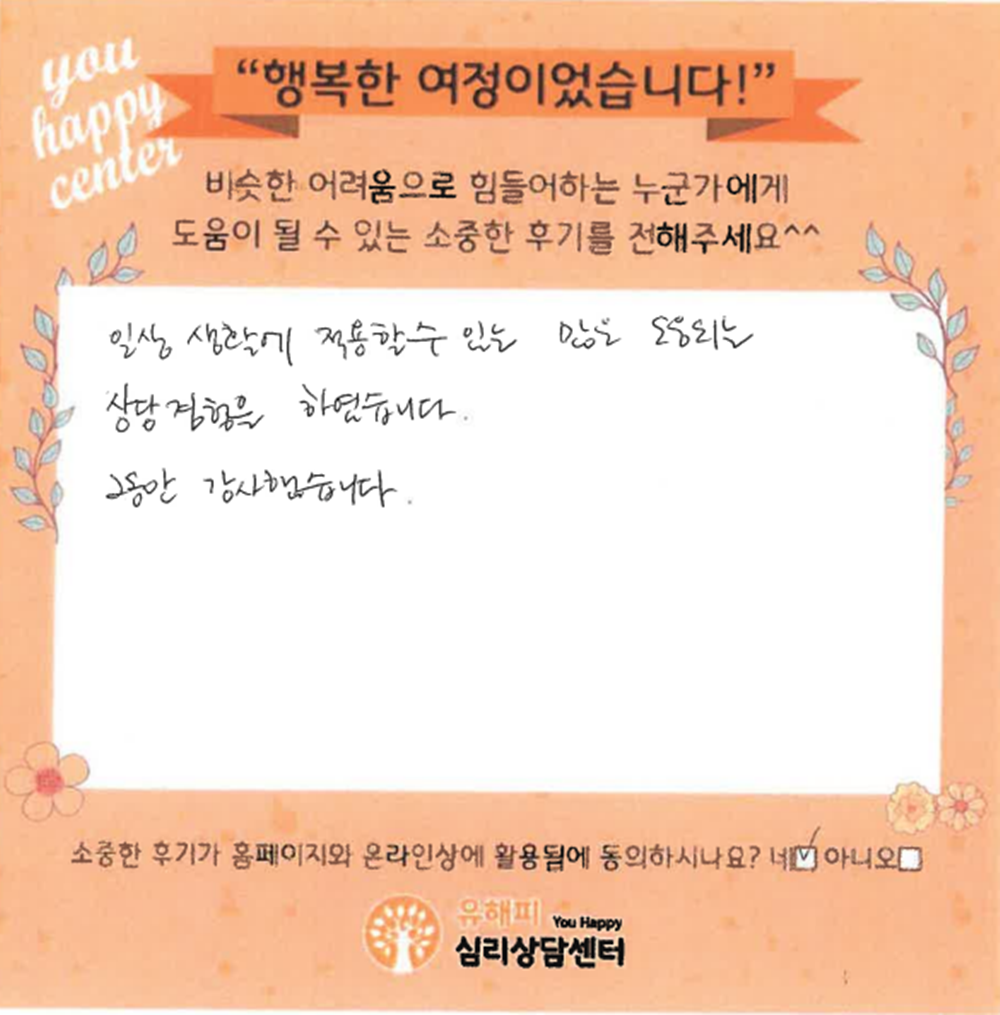 you
happy
center
“행복한 여정이었습니다!”
비슷한 어려움으로 힘들어하는 누군가에게
도움이 될 수 있는 소중한 후기를 전해주세요^^
일상 생활에 적용할수 있는 많은 도움되는
상담경험을 하였습니다.
그동안 감사했습니다.
소중한 후기가 홈페이지와 온라인상에 활용됨에 동의하시나요? 네 아니오
유해피 You Happy
심리상담센터